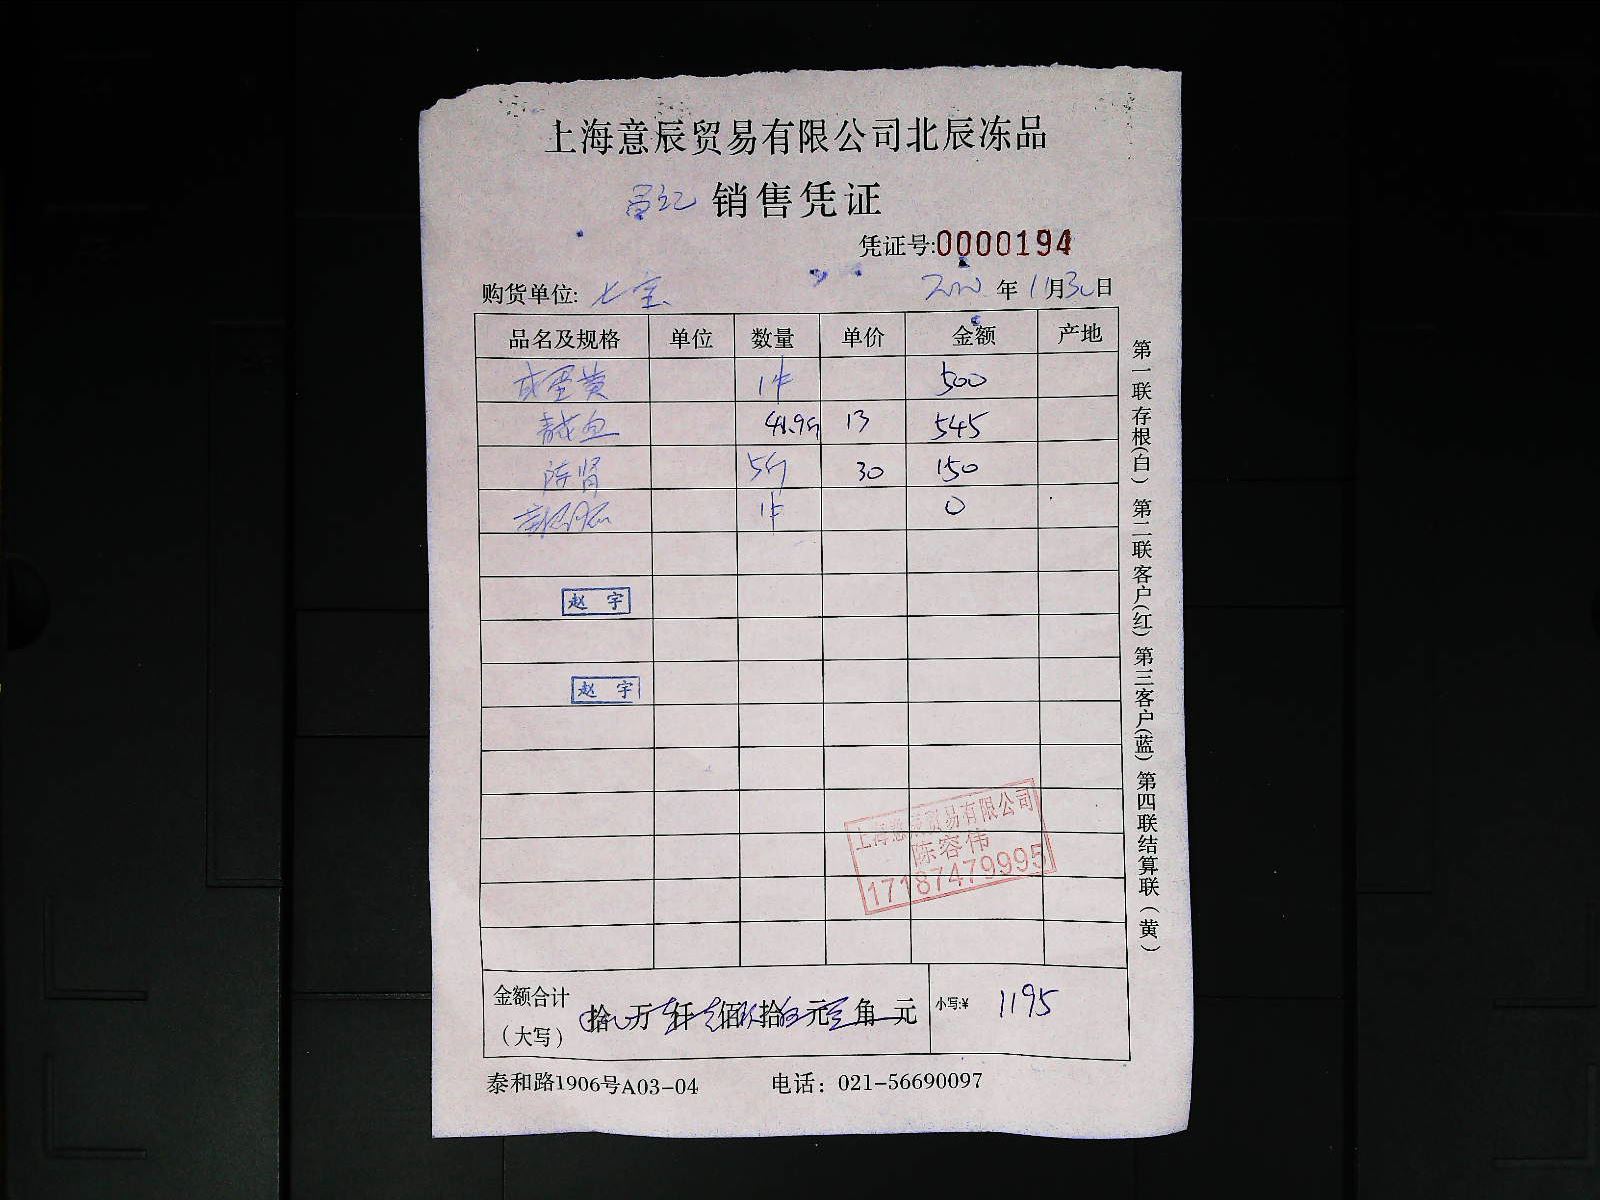 上海意辰贸易有限公司北辰冻品
销售凭证
凭证号:0000194
购货单位: 七宝 年11月30日
品名及规格 单位 数量 单价 金额 产地
咸蛋黄 1件 500
青鱼 41.9斤 13 545
陈肾 5斤 30 150
1件 0
赵 宇
赵 宇
上海意辰贸易有限公司
陈容伟
17187479995
金额合计 拾 万 仟 佰 拾 元 角 元 小写:¥ 1195
（大写）
泰和路1906号A03-04 电话：021-56690097
第一联存根(白) 第二联客户(红) 第三客户(蓝) 第四联结算联(黄)